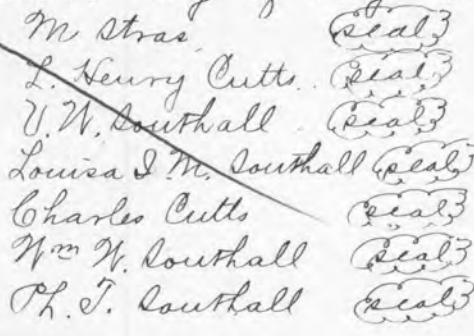 M Stras. (seal)
L. Henry Cutts. (seal)
V. W. Southall. (seal)
Louisa I M. Southall (seal)
Charles Cutts (seal)
Wm W. Southall (seal)
Ph. T. Southall (seal)